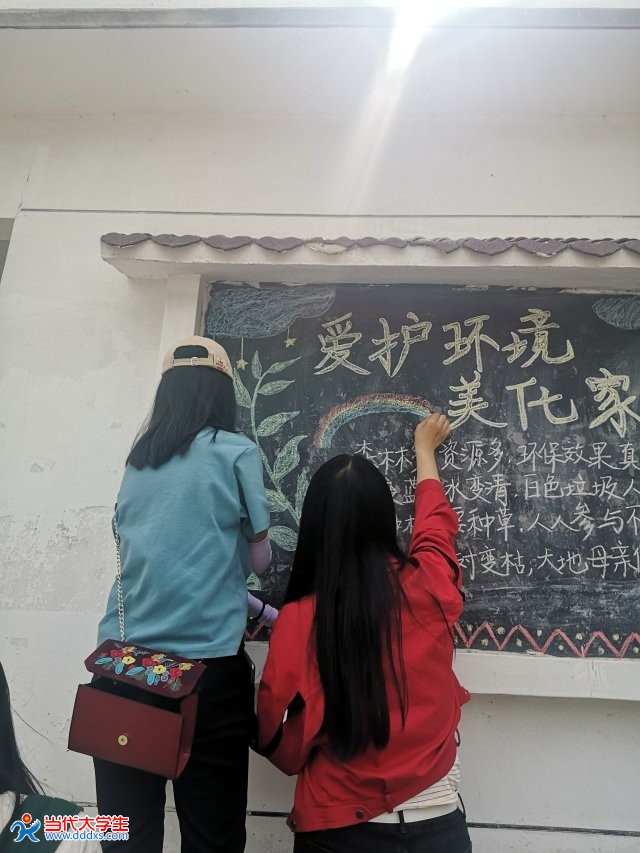 爱护环境
美化家
森林 资源多,环保效果真
蓝 水变清,白色垃圾人
种草,人人参与
树变枯,大地母亲
当代大学生
www.dddxs.com